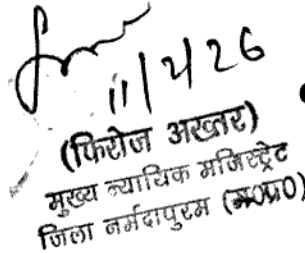 11/4/26
(फिरोज अख्तर)
मुख्य न्यायिक मजिस्ट्रेट
जिला नर्मदापुरम (म0प्र0)